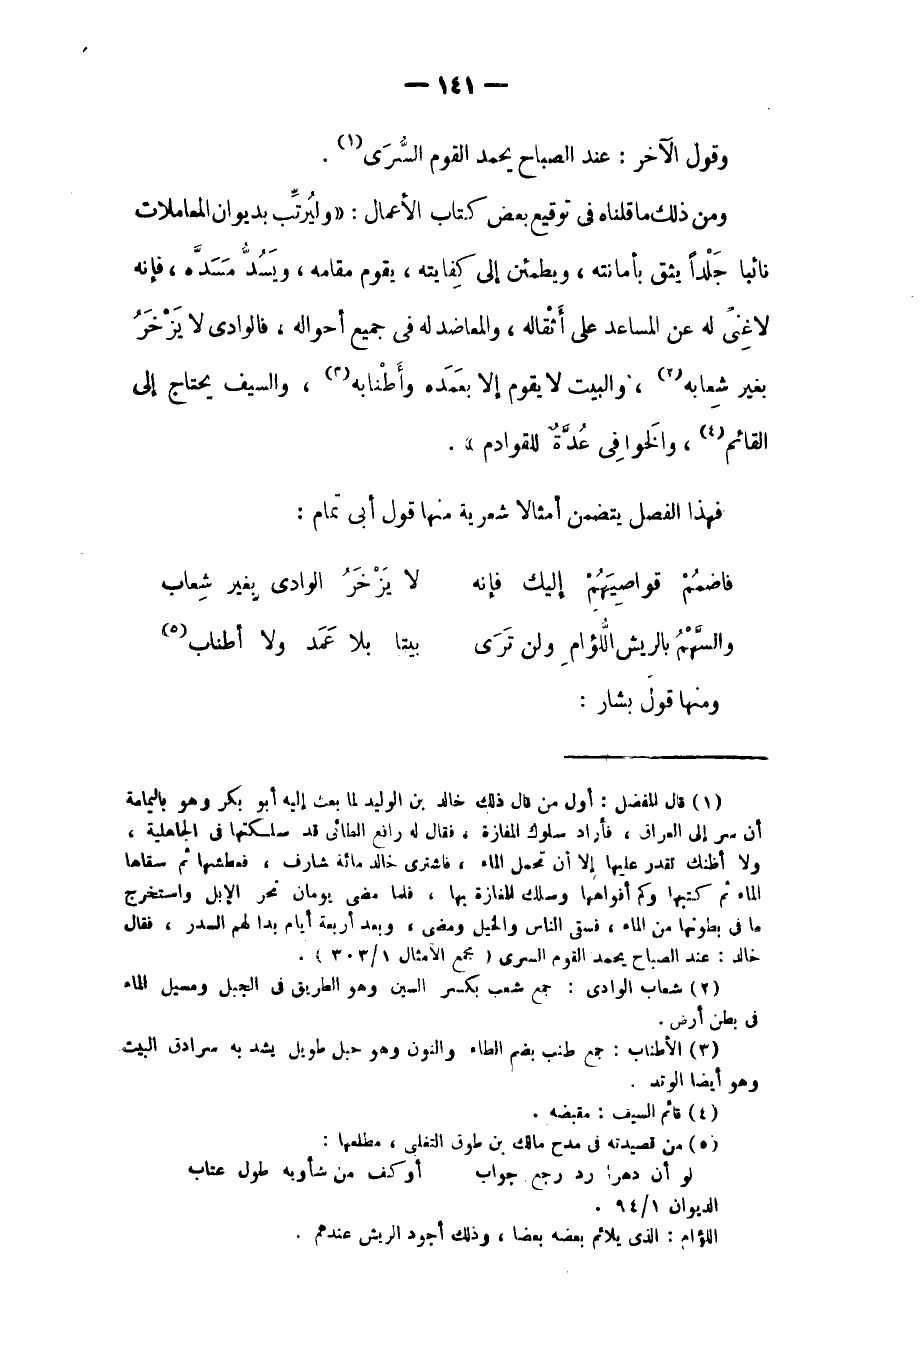 — ١٤١ —
وقول الآخر : عند الصباح يحمد القوم السُّرَى(١) .
ومن ذلك ما قلناه فى توقيع بعض كتاب الأعمال : « وليُرتِّب بديوان المعاملات
نائبا جَلْداً يثق بأمانته ، ويطمئن إلى كِفايته ، يقوم مقامه ، ويَسُدُّ مَسَدَّه ، فإنه
لا غِنىً له عن المساعد على أَثْقاله ، والمعاضد له فى جميع أحواله ، فالوادى لا يَزْخَرُ
بغير شِعابه(٢) ، والبيت لا يقوم إلا بعَمَده وأَطْنابه(٣) ، والسيف يحتاج إلى
القائم(٤) ، والخَوافِى عُدَّةٌ للقوادم » .
فهذا الفصل يتضمن أمثالا شعرية منها قول أبى تمام :
فاضمُمْ قواصِيَهُمْ إليك فإنه لا يَزْخَرُ الوادى بِغير شِعاب
والسَّهْمُ بالريش اللُّؤامِ ولن تَرَى بيتا بلا عَمَد ولا أطناب(٥)
ومنها قول بشار :
(١) قال المفضل : أول من قال ذلك خالد بن الوليد لما بعث إليه أبو بكر وهو باليمامة
أن سر إلى العراق ، فأراد سلوك المفازة ، فقال له رافع الطائى قد سلكتها فى الجاهلية ،
ولا أظنك تقدر عليها إلا أن تحمل الماء ، فاشترى خالد مائة شارف ، فعطشها ثم سقاها
الماء ثم كتبها وكم أفواهها وسلك المفازة بها ، فلما مضى يومان نحر الإبل واستخرج
ما فى بطونها من الماء ، فسقى الناس والخيل ومضى ، وبعد أربعة أيام بدا لهم السدر ، فقال
خالد : عند الصباح يحمد القوم السرى ( مجمع الأمثال ٣٠٣/١ ) .
(٢) شعاب الوادى : جمع شعب بكسر السين وهو الطريق فى الجبل ومسيل الماء
فى بطن أرض .
(٣) الأطناب : جمع طنب بضم الطاء والنون وهو حبل طويل يشد به سرادق البيت
وهو أيضا الوتد .
(٤) قائم السيف : مقبضه .
(٥) من قصيدته فى مدح مالك بن طوق التغلبى ، مطلعها :
لو أن دهرا رد رجع جواب أو كف من شأويه طول عتاب
الديوان ٩٤/١ .
اللؤام : الذى يلائم بعضه بعضا ، وذلك أجود الريش عندهم .